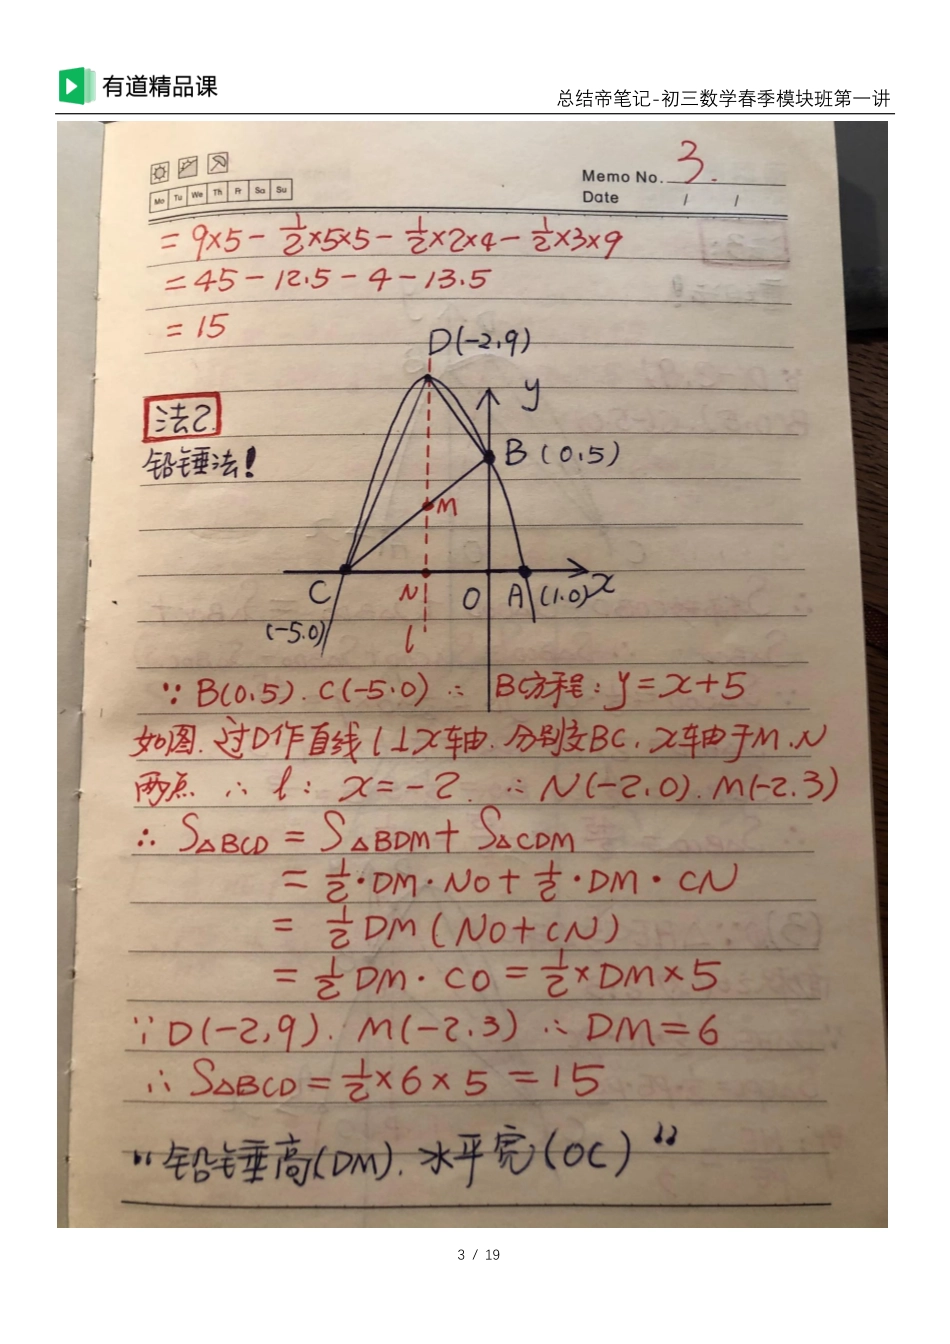 有道精品课
总结帝笔记-初三数学春季模块班第一讲
Memo No. 3.
Mo Tu We Th Fr Sa Su
Date / /
= 9×5 - 1/2×5×5 - 1/2×2×4 - 1/2×3×9
= 45 - 12.5 - 4 - 13.5
= 15
D(-2,9)
法2.
铅锤法!
y
B (0.5)
M
C
N
O
A
(1.0)
x
(-5.0)
l
∵ B(0.5). C(-5.0) ∴ BC方程: y=x+5
如图.过D作直线l⊥x轴.分别交BC、x轴于M、N
两点 ∴ l: x=-2. ∴ N(-2.0). M(-2.3)
∴ S△BCD = S△BDM + S△CDM
= 1/2·DM·NO + 1/2·DM·CN
= 1/2 DM (NO+CN)
= 1/2 DM·CO = 1/2×DM×5
∵ D(-2,9). M(-2.3) ∴ DM=6
∴ S△BCD = 1/2×6×5 = 15
“铅锤高(DM).水平宽(OC)”
3 / 19